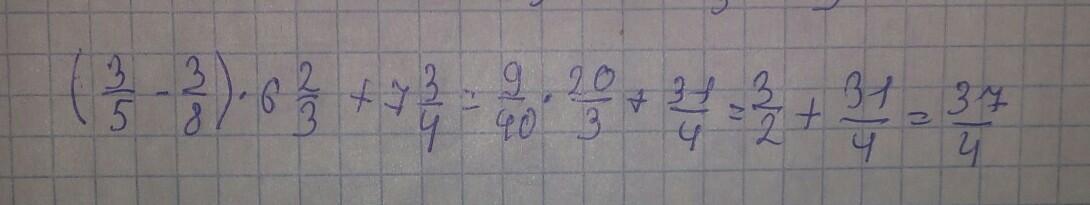 (3/5 - 3/8) · 6 2/3 + 7 3/4 = 9/40 · 20/3 + 31/4 = 3/2 + 31/4 = 37/4